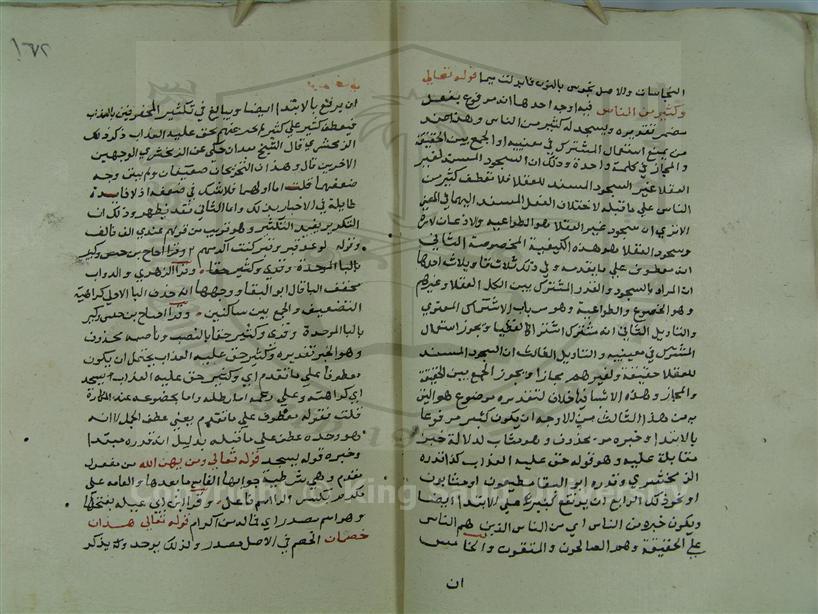 النجاسات والاصل نجوس بالنون فابدلت ميما قوله تعالى
وكثير من الناس فيه اوجه احدها انه مرفوع بفعل
مضمر تقديره ويسجد له كثير من الناس وهذا عند
من يمنع استعمال المشترك في معنييه او الجمع بين الحقيقة
والمجاز في كلمة واحدة وذلك ان السجود المسند لغير
العقلا غير السجود المسند للعقلا فلا تعطف كثير من
الناس على ما قبله لاختلاف الفعل المسند اليهما في المعنى
الا ترى ان سجود غير العقلا هو الطواعية والاذعان لامره
وسجود العقلا هو هذه الكيفية المخصوصة الثاني
انه معطوف على ما تقدمه وفي ذلك ثلاث تاويلات احدها
ان المراد بالسجود والقدر المشترك بين الكل العقلا وغيرهم
وهو الخضوع والطواعية وهو من باب الاشتراك المعنوي
والتاويل الثاني انه مشترك اشتراكا لفظيا ويجوز استعمال
المشترك في معنييه والتاويل الثالث ان السجود المسند
للعقلا حقيقة ولغيرهم مجازا ويجوز الجمع بين الحقيقة
والمجاز وهذه الاشيا فيها خلاف لتقديره موضوع هو اليق
به من هذا الثالث من الاوجه ان يكون كثير مرفوعا
بالابتدا وخبره محذوف وهو مثاب لدلالة خبر
مقابلة عليه وهو قوله حق عليه العذاب كذا قدره
الزمخشري وقدره ابو البقا مطيعون او مثابون
او نحو ذلك الرابع ان يرتفع كثير على الابتدا ايضا
ويكون خبره من الناس اي من الناس الذين هم الناس
على الحقيقة وهو الصالحون والمتقون والخامس
ان
١٦٢
ان يرتفع بالابتدا ايضا ويبالغ في تكثير المحقوقين بالعذاب
فيعطف كثير على كثير ثم يخبر عنهم بحق عليه العذاب ذكر ذلك
الزمخشري قال الشيخ بعد ان حكى عن الزمخشري الوجهين
الاخيرين قال وهذان التخريجان ضعيفان ولم يبين وجه
ضعفهما قلت اما اولهما فلا شك في ضعفه اذ لا فايدة
طايلة في الاخبار بذلك واما الثاني فقد يظهر وذلك ان
التكرير يفيد التكثير وهو قريب من قولهم عندي الف والف
وقوله لو عد قبر وقبر كنت اكرمهم وقرا جناح بن حبيش وكبير
بالبا الموحدة وقري وكثير حقا وقرا الزهري والدواب
مخفف البا قال ابو البقا ووجهها انه حذف البا الاولى كراهية
التضعيف والجمع بين ساكنين وقرا جناح بن حبيش وكبير
بالبا الموحدة وقري وكثير حقا بالنصب وناصبه محذوف
وهو الخبر تقديره وكثير حق عليه العذاب يحتمل ان يكون
معطوفا على ما تقدم اي وكثير حق عليه العذاب يسجد
اي كراهته وعلى
قلت فقوله معطوف على ما تقدم يعني عطف الجمل لا انه
هو وحده عطف على ما قبله بدليل انه قدره مبتدا
وخبره قوله يسجد قوله تعالى ومن يهن الله من مفعول
مقدم وهي شرطية جوابها الفا مع ما بعدها والعامة على
مكرم بكسر الرا اسم فاعل وقرا ابن ابي عبلة بفتحها
وهو اسم مصدر اي فما له من اكرام قوله تعالى هذان
خصمان الخصم في الاصل مصدر ولذلك يوحد ويذكر